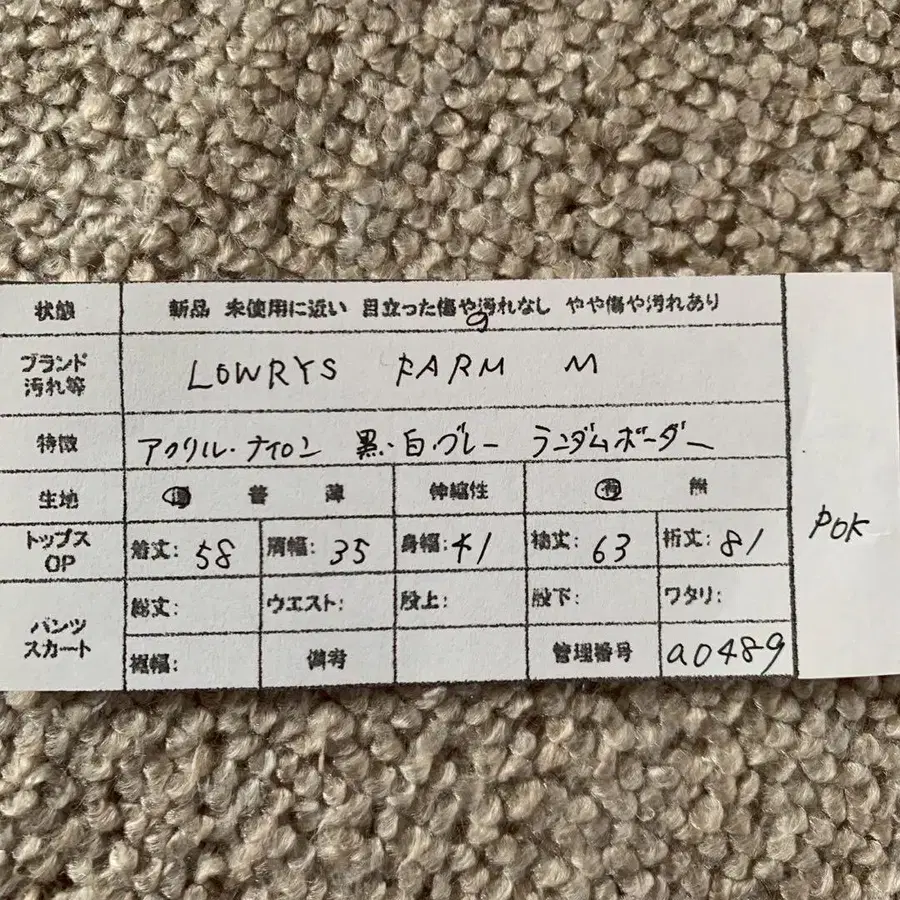 状態 新品 未使用に近い 目立った傷や汚れなし やや傷や汚れあり
ブランド
汚れ等 LOWRYS FARM M
特徴 アクリル・ナイロン 黒・白・グレー ランダムボーダー
生地 厚 普 薄 伸縮性 有 無
トップス
OP 着丈: 58 肩幅: 35 身幅: 41 袖丈: 63 裄丈: 81
POK
パンツ
スカート 総丈: ウエスト: 股上: 股下: ワタリ:
裾幅: 備考 管理番号 a0489